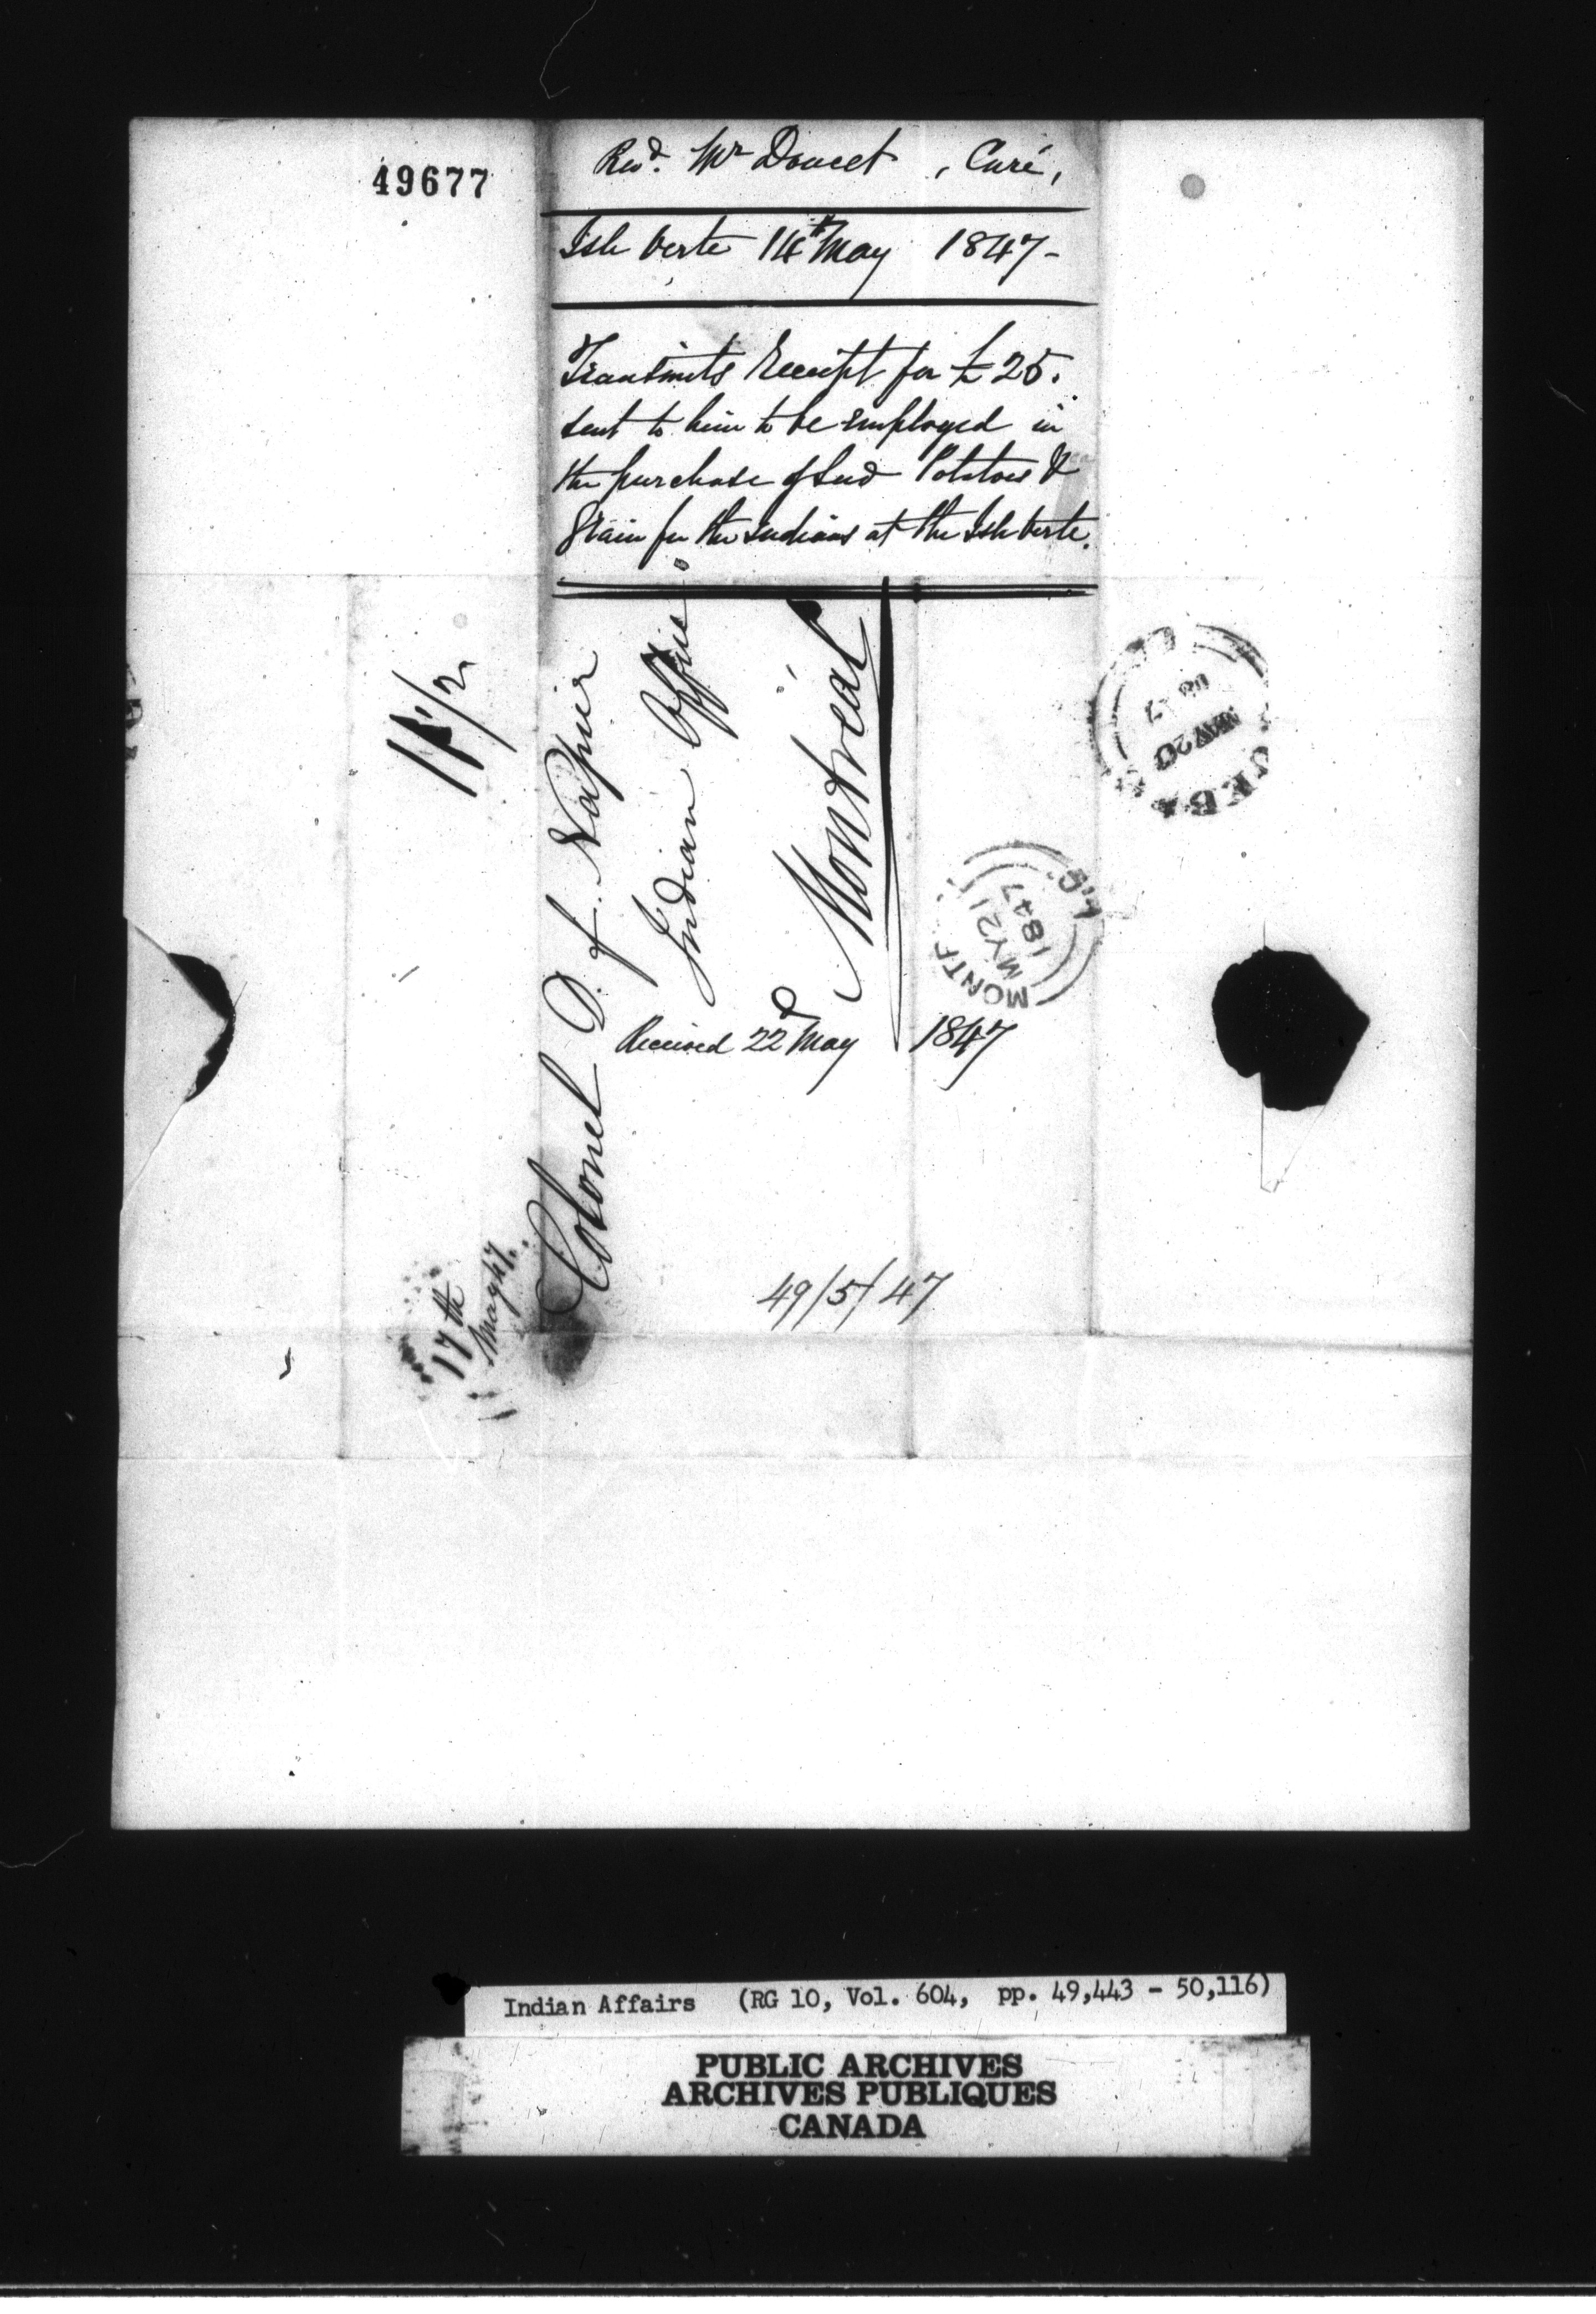 49677
Revd. Mr Doucet, Curé,
Isle Verte 14th May 1847-
Transmits Receipt for £25.
sent to him to be employed in
the purchase of Seed Potatoes &
Grain for the Indians at the Isle Verte.
11 1/2
Colonel D. f. Napier
Indian Office
Montreal
MAY 20
MONTR
MY 21
1847
L.C.
Received 22d May 1847
17th
May 47.
49/5/47
Indian Affairs (RG 10, Vol. 604, pp. 49,443 - 50,116)
PUBLIC ARCHIVES
ARCHIVES PUBLIQUES
CANADA